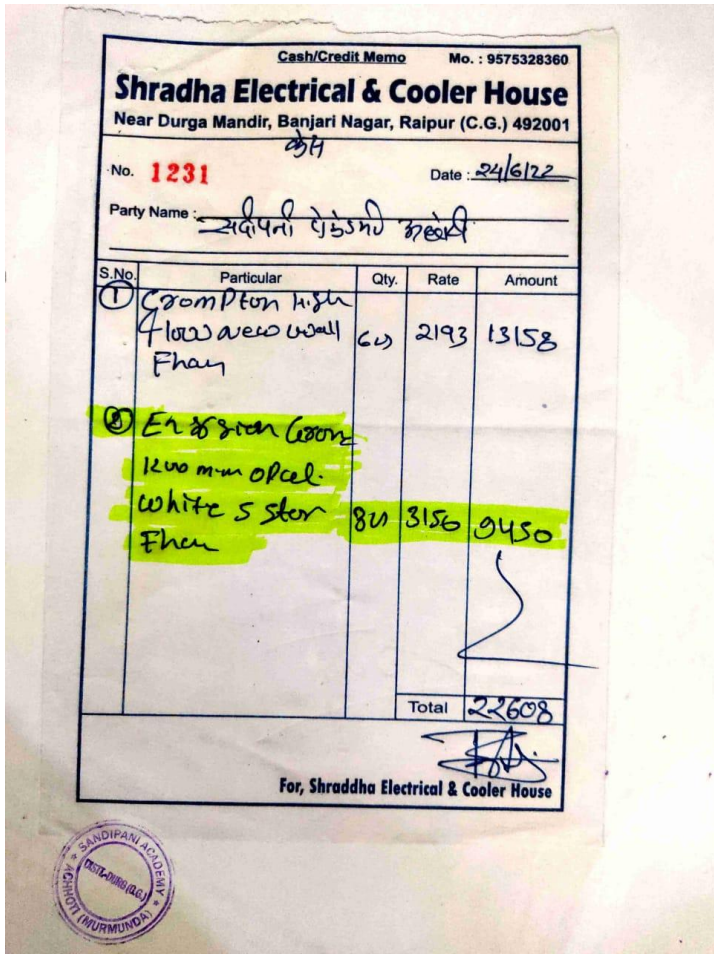 Cash/Credit Memo Mo. : 9575328360
Shradha Electrical & Cooler House
Near Durga Mandir, Banjari Nagar, Raipur (C.G.) 492001
No. 1231 Date : 24/6/22
Party Name :
S.No. Particular Qty. Rate Amount
1 Crompton High
Flow new wall 2193 13158
Fhan
2
1200 m-m opal.
white 5 star 3150 9450
Fhan
Total 22608
For, Shraddha Electrical & Cooler House
SANDIPANI ACADEMY
ACHHOTI (MURMUNDA)